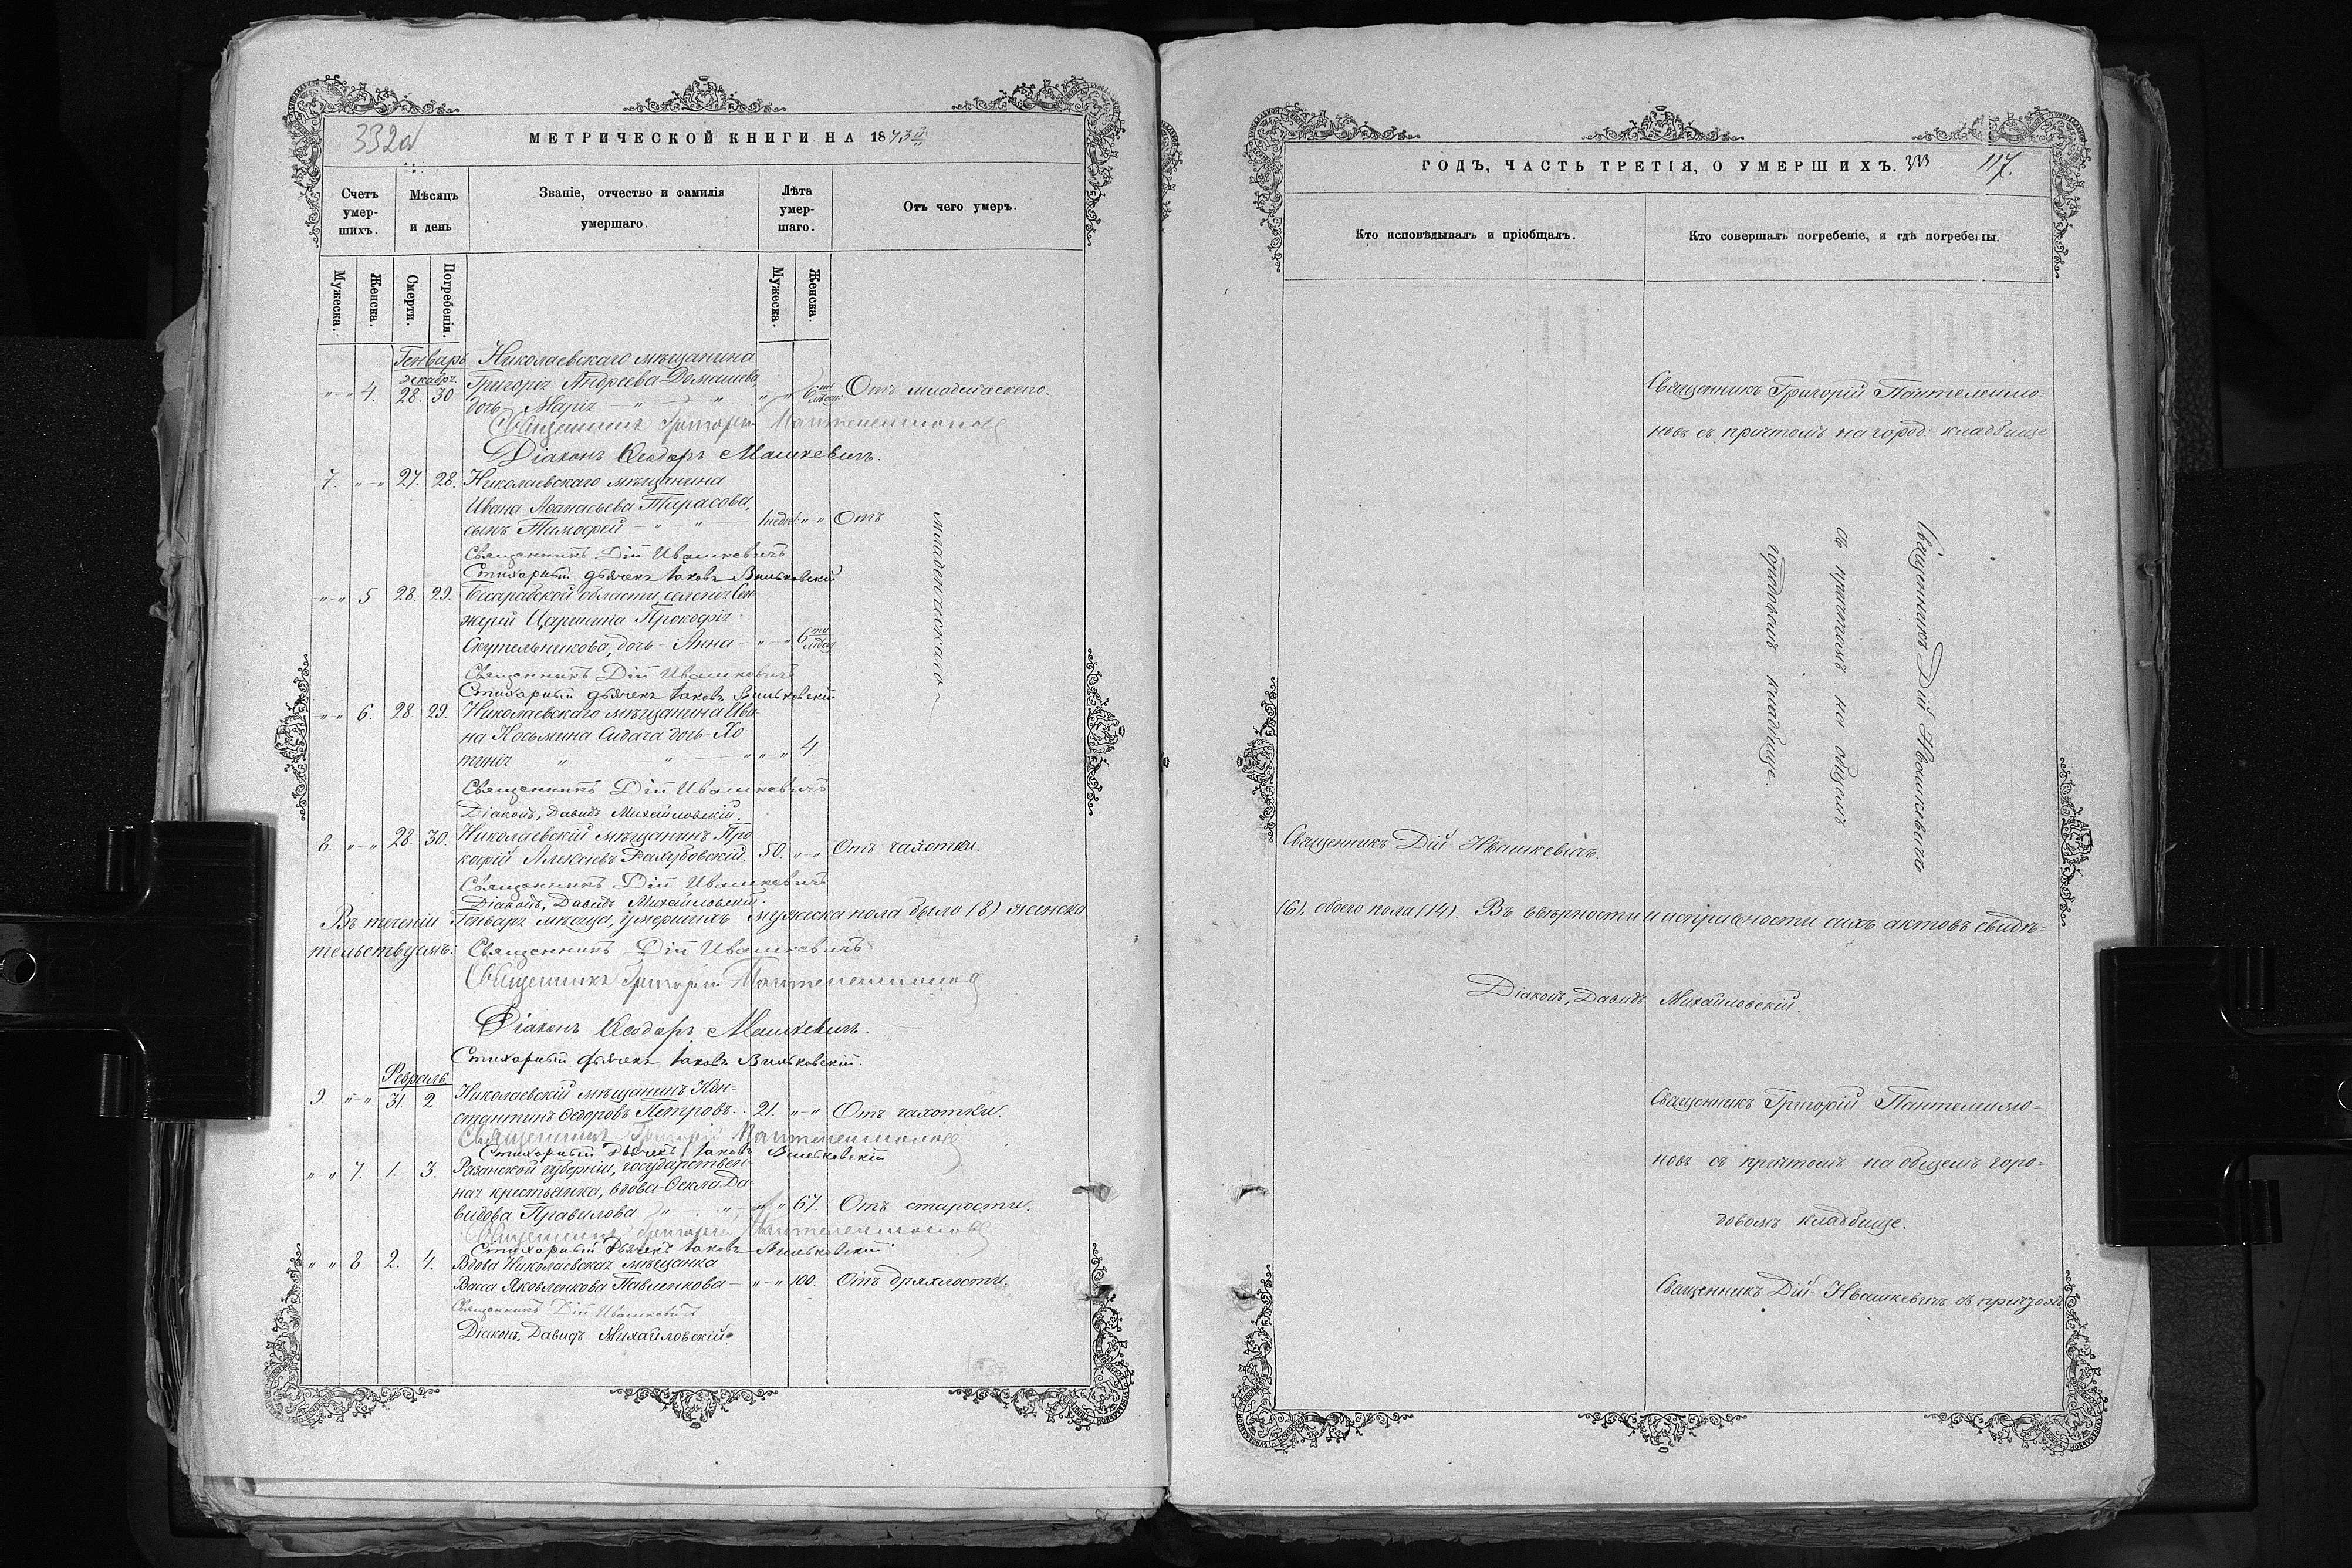 332об
МЕТРИЧЕСКОЙ КНИГИ НА 1873й
Счетъ умер-шихъ.
Мѣсяцъ и день
Званіе, отчество и фамилія умершаго.
Лѣта умер-шаго.
Отъ чего умеръ.
Мужеска.
Женска.
Смерти.
Погребенія.
Мужеска.
Женска.
Генварь Николаевскаго мѣщанина
декабрь Григорія Андреева Домашева
"-" 4. 28. 30 дочь Марія " " " Отъ младенческаго.
Священникъ Григорій Пантелеимоновъ
Діаконъ Ѳеодоръ Машкевичъ.
7. "-" 27. 28. Николаевскаго мѣщанина
Ивана Аѳанасьева Тарасова,
сынъ Тимофей - " " "-" Отъ
младенческаго
Священникъ Дій Ивашкевичъ
Стихарный дьячекъ Іаковъ Вильковскій
"-" 5 28. 29. Бесарабской области, селенія
Царигина Прокофія
Скутельникова, дочь - Анна - " "
Священникъ Дій Ивашкевичъ
Стихарный дьячекъ Іаковъ Вильковскій
"-" 6. 28. 29. Николаевскаго мѣщанина Ива
на Косьмина Сидача дочь Хо-
тинія " " " " 4.
Священникъ Дій Ивашкевичъ
Діаконъ, Давидъ Михайловскій.
8. "-" 28. 30. Николаевскій мѣщанинъ Про
кофій Алексіевъ Голубовскій. 50. "-" Отъ чахотки.
Священникъ Дій Ивашкевичъ
Діаконъ, Давидъ Михайловскій.
Въ теченіи Генваря мѣсяца, умершихъ мужеска пола было (8) женска
тельствуемъ: Священникъ Дій Ивашкевичъ
Священникъ Григорій Пантелеимоновъ
Діаконъ Ѳеодоръ Машкевичъ.
Стихарный дьячекъ Іаковъ Вильковскій.
Февраль
9. "-" 31. 2 Николаевскій мѣщанинъ Кон-
стантинъ Ѳедоровъ Петровъ. 21. "-" Отъ чахотки.
Священникъ Григорій Пантелеимоновъ
Стихарный дьячекъ Іаковъ Вильковскій
" " 7. 1. 3. Рязанской губерніи, государствен
ная крестьянка, вдова Ѳекла Да
видова Правилова " " " " 67. Отъ старости.
Священникъ Григорій Пантелеимоновъ
Стихарный дьячекъ Іаковъ Вильковскій
" " 8. 2. 4. Вдова Николаевская мѣщанка
Васса Яковленкова Павленкова - "-" 100. Отъ дряхлости.
Священникъ Дій Ивашкевичъ
Діаконъ, Давидъ Михайловскій.
ГОДЪ, ЧАСТЬ ТРЕТІЯ, О УМЕРШИХЪ. 333 117.
Кто исповѣдывалъ и пріобщалъ.
Кто совершалъ погребеніе, и гдѣ погребены.
Священникъ Григорій Пантелеимо-
новъ съ причтомъ на город: кладбище
Священникъ Дій Ивашкевичъ
съ причтомъ на общемъ
городовомъ кладбище.
Священникъ Дій Ивашкевичъ.
(6). обоего пола (14). Въ вѣрности и исправности сихъ актовъ свидѣ-
Діаконъ, Давидъ Михайловскій.
Священникъ Григорій Пантелеимо-
новъ съ причтомъ на общемъ горо-
довомъ кладбище.
Священникъ Дій Ивашкевичъ съ причтомъ